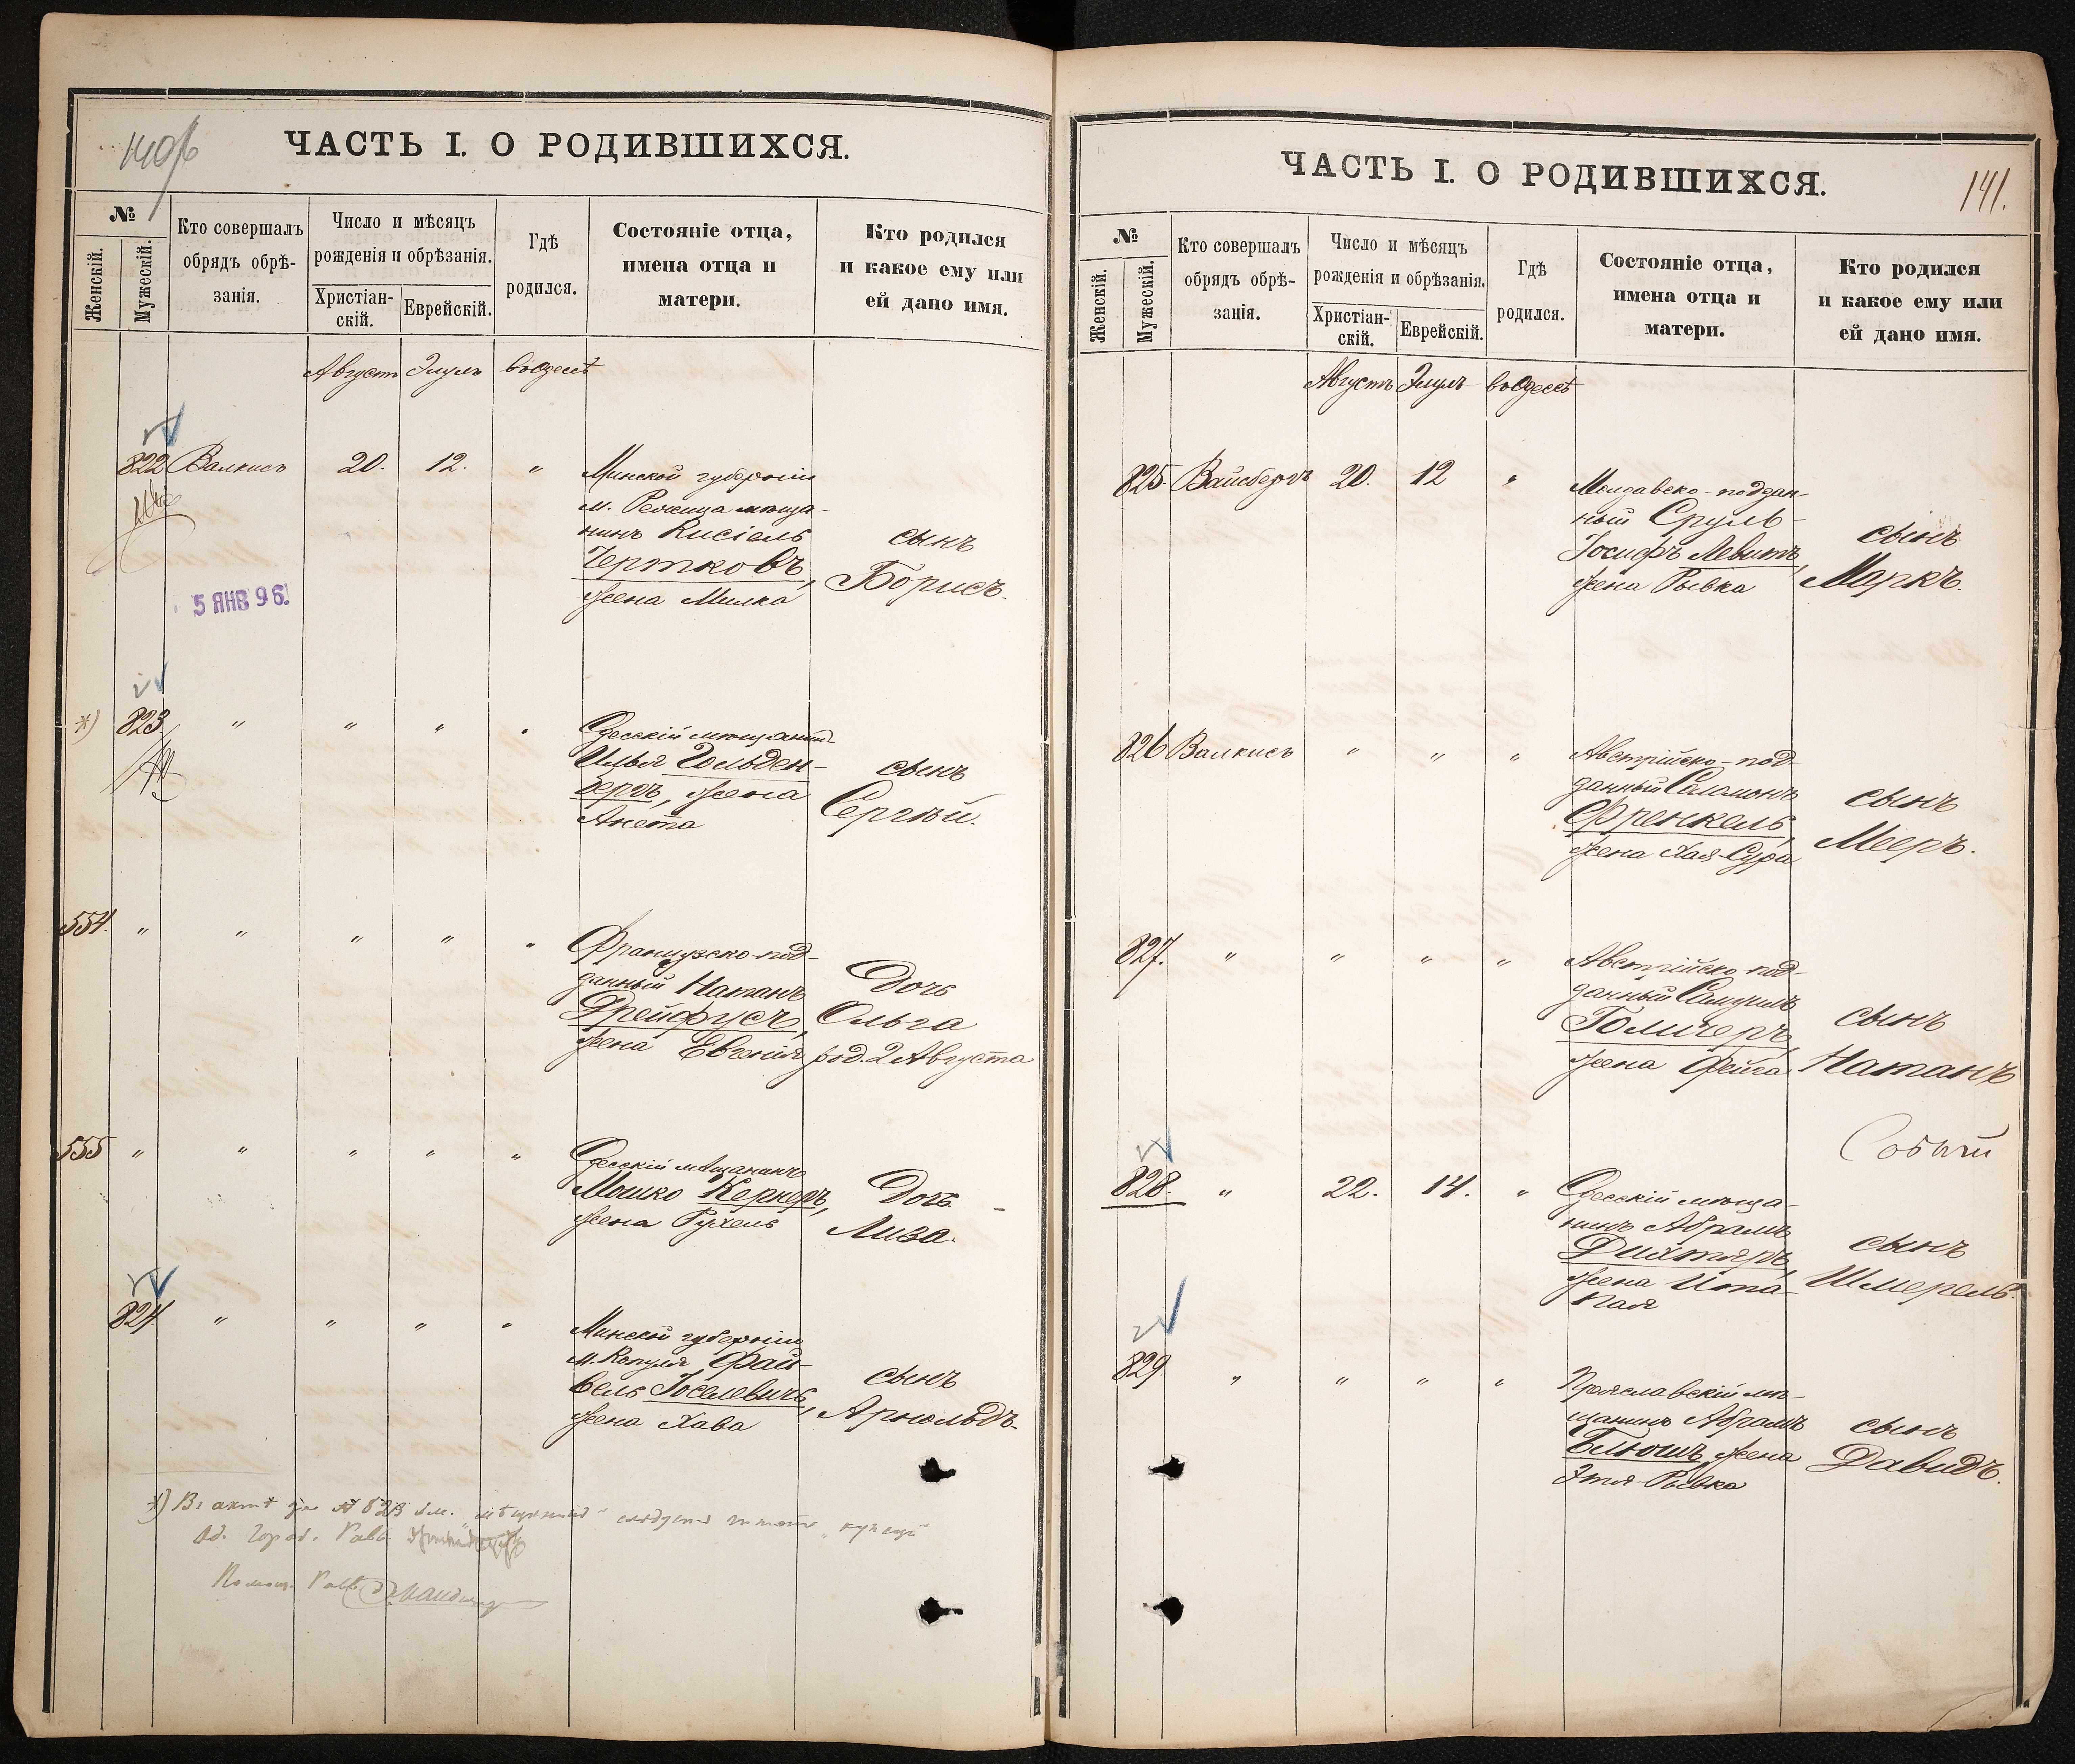 140/б
ЧАСТЬ I. О РОДИВШИХСЯ.
№
Женскій.
Мужескій.
Кто совершалъ
обрядъ обрѣ-
занія.
Число и мѣсяцъ
рожденія и обрѣзанія.
Христіан-
скій.
Еврейскій.
Гдѣ
родился.
Состояніе отца,
имена отца и
матери.
Кто родился
и какое ему или
ей дано имя.
Августъ Элулъ въ Одессѣ
822 Валкисъ 20. 12. "
Минской губерніи
м. Речица мѣща-
нинъ Кисіель
Чертковъ,
жена Милка
сынъ
Борисъ.
5 ЯНВ 96.
*) 823. " " " "
Одесскій мѣщанинъ
Илья Гольден-
бергъ, жена
Анета
сынъ
Сергѣй.
554. " " " " "
Французско-под-
данный Натанъ
Дрейфусъ,
жена Евгенія
Дочь
Ольга
род. 2 Августа
555 " " " " "
Одесскій мѣщанинъ
Мошко Керкеръ,
жена Рухель
Дочь
Лиза.
824 " " " "
Минской губерніи
м. Копуля Фай-
вель Іоселевичъ,
жена Хава
сынъ
Арнольдъ.
*) Въ актѣ за № 823 вм. "мѣщанинъ" слѣдуетъ читать "купецъ"
Од. Город. Равв.
Помощ. Равв.
141.
ЧАСТЬ I. О РОДИВШИХСЯ.
№
Женскій.
Мужескій.
Кто совершалъ
обрядъ обрѣ-
занія.
Число и мѣсяцъ
рожденія и обрѣзанія.
Христіан-
скій.
Еврейскій.
Гдѣ
родился.
Состояніе отца,
имена отца и
матери.
Кто родился
и какое ему или
ей дано имя.
Августъ Элулъ въ Одессѣ
825. Вайсбергъ 20. 12 "
Молдавско-поддан-
ный Сруль-
Іосифъ Левитъ,
жена Рывка
сынъ
Маркъ.
826 Валкисъ " " "
Австрійско-под-
данный Саломонъ
Френкель,
жена Хая-Сура
сынъ
Мееръ.
827. " " " "
Австрійско-под-
данный Самуилъ
Голичеръ,
жена Фейга
сынъ
Натанъ
828. " 22. 14. "
Одесскій мѣща-
нинъ Абрамъ
Дихтяръ,
жена Ита-
сынъ
Шмерель.
829. " " " "
мѣ-
щанинъ Абрамъ
Блюшъ, жена
Этя-Рывка
сынъ
Давидъ.